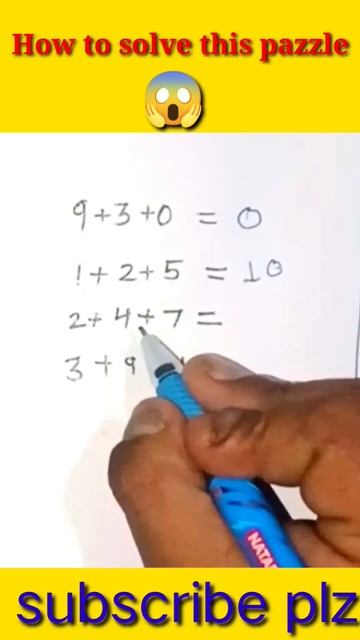 How to solve this pazzle
9+3+0 = 0
1+2+5 = 10
2+4+7=
3+9
NATA
subscribe plz